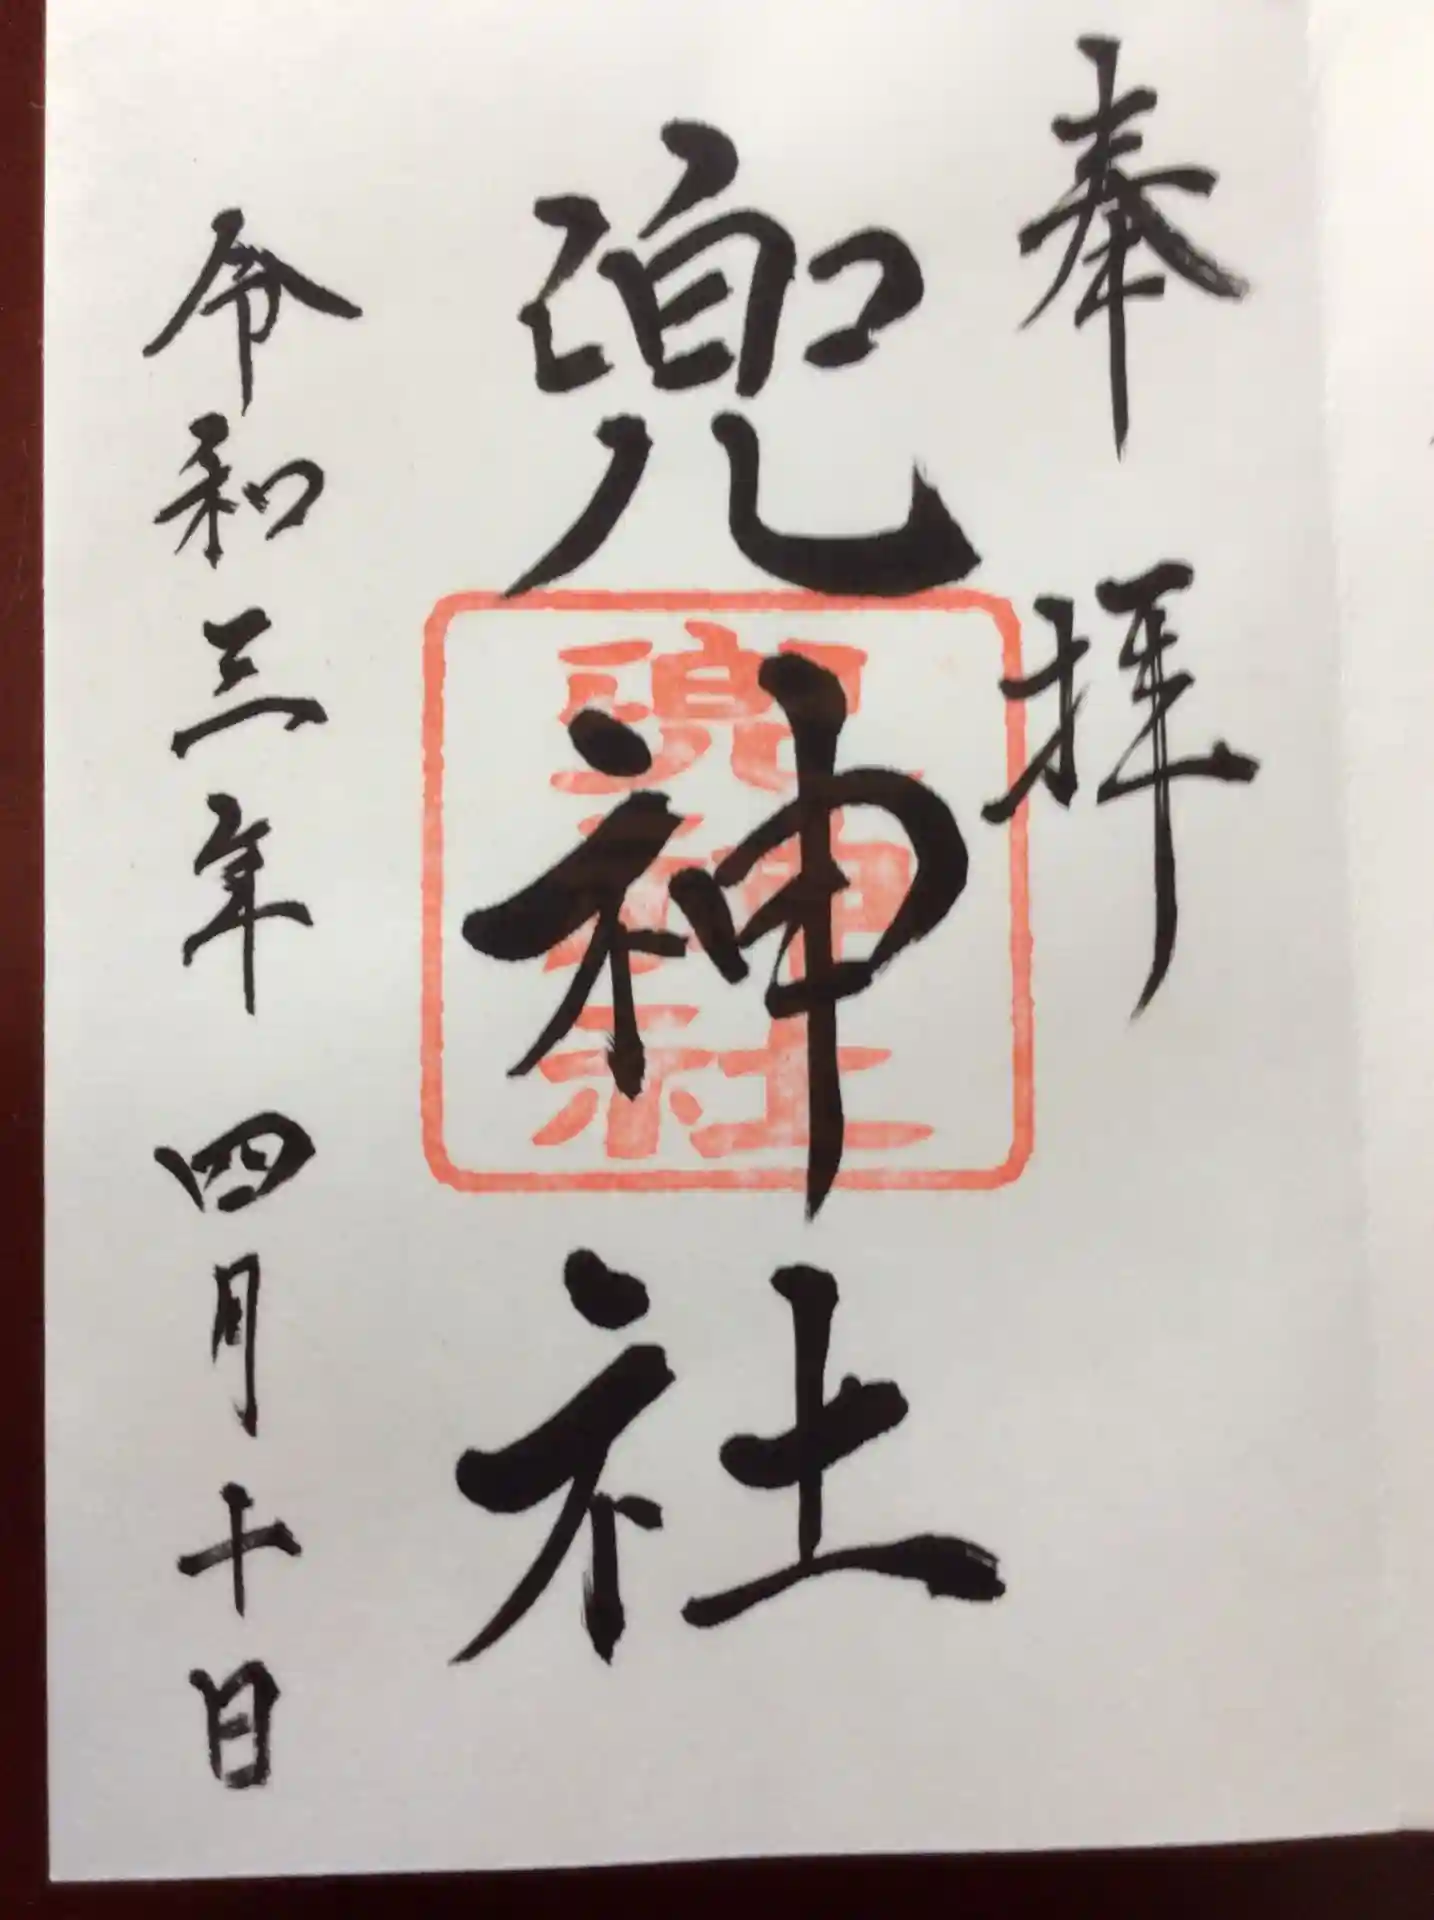 奉拝
兜神社
兜神社
令和三年四月十日